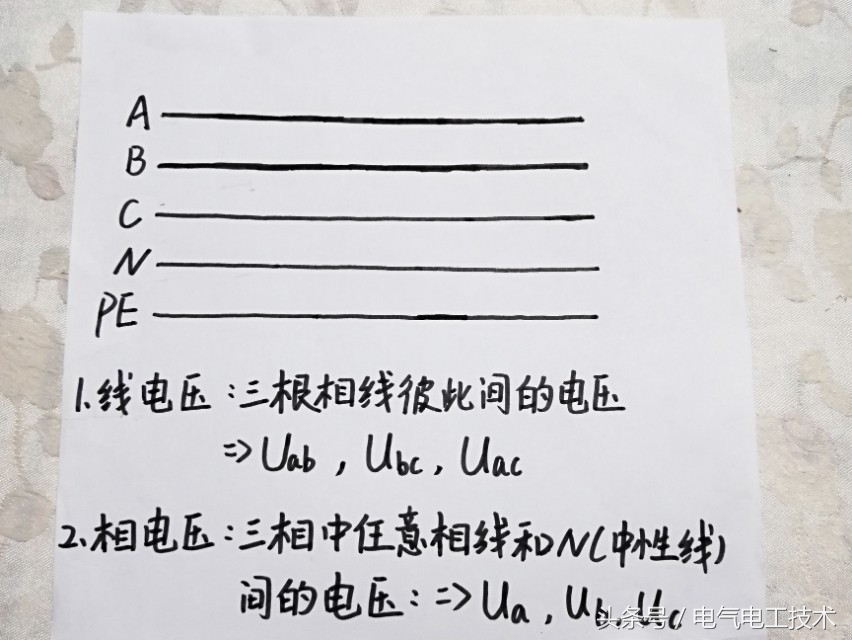 A
B
C
N
PE
1.线电压:三根相线彼此间的电压
=> Uab, Ubc, Uac
2.相电压:三相中任意相线和N(中性线)
间的电压:=> Ua, Ub, Uc
头条号/电气电工技术